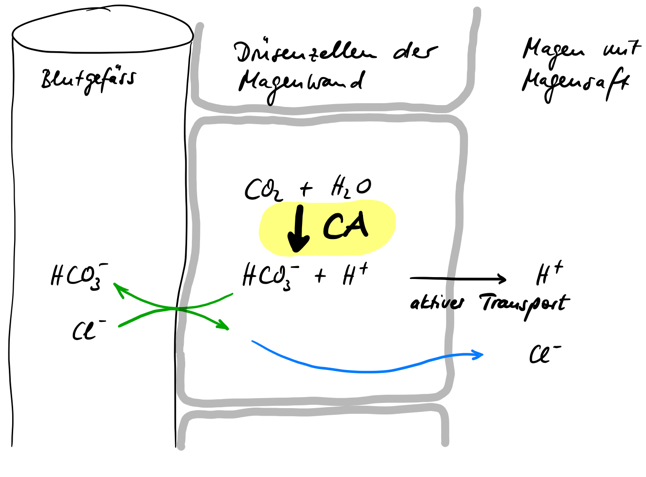 Blutgefäss
Drüsenzellen der
Magenwand
Magen mit
Magensaft
CO₂ + H₂O
CA
HCO₃⁻
HCO₃⁻ + H⁺
H⁺
aktiver Transport
Cl⁻
Cl⁻